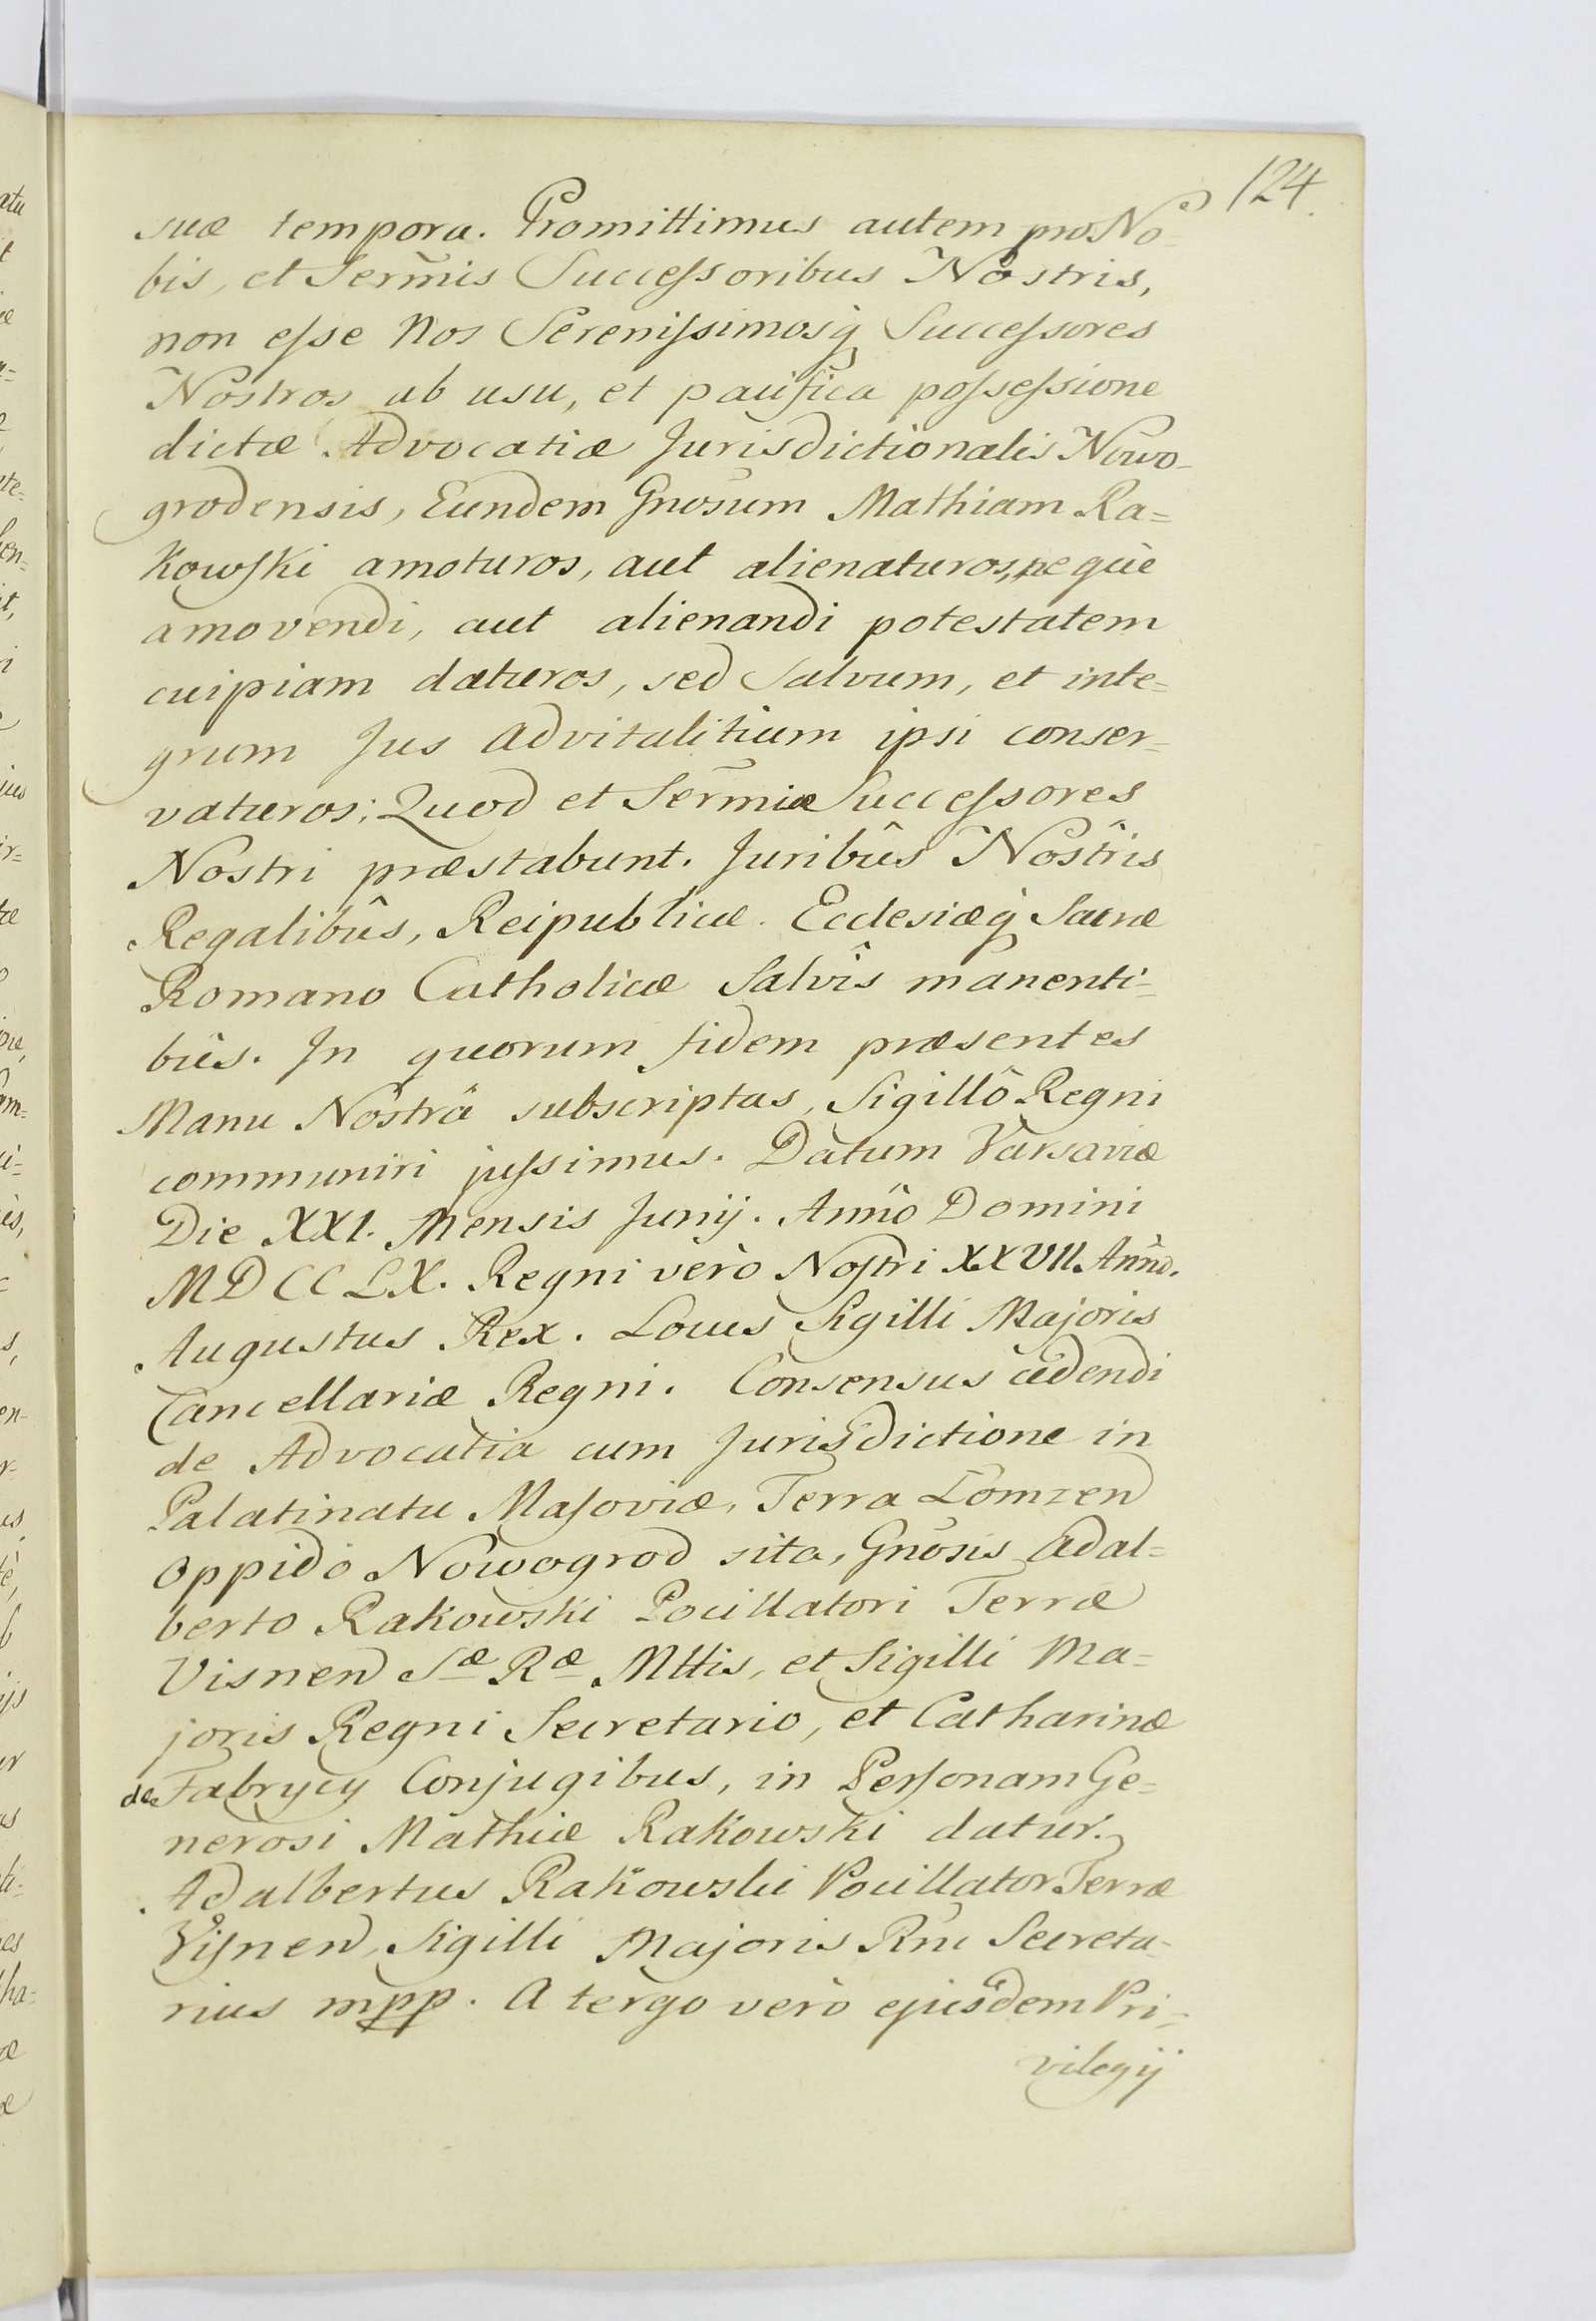 124.
suæ tempora. Promittimus autem pro No=
bis, et Serm̃is Succeſsoribus Nostris,
non eſse Nos Sereniſsimosq̨ Succeſsores
Nostros ab usu, et pacifica poſseſsione
dictæ Advocatiæ Jurisdictionalis Nowo-
grodensis, Eundem Gnosum Mathiam Ra=
Kowſki amoturos, aut alienaturos, neque
amovendi, aut alienandi potestatem
cuipiam daturos, sed Salvum, et inte=
grum Jus advitalitium ipsi conser=
vaturos; Quod et Serm̃i Succeſsores
Nostri præstabunt. Juribûs Nostrîs
Regalibûs, Reipublicæ. Ecclesiæq̨ Sacræ
Romano Catholicæ Salvîs manenti=
bûs. In quorum fidem præsentes
Manu Nostrâ subscriptas, Sigillô Regni
communiri juſsimus. Datum Varsaviæ
Die XXI. Mensis Junij. Annô Domini
MDCCLX. Regni verò Noſtri XXVII. Annô.
Augustus Rex. Locus Sigilli Majoris
Cancellariæ Regni. Consensus cedendi
de Advocatia cum Jurisdictione in
Palatinatu Maſoviæ, Terra Łomzen
Oppido Nowogrod sita, Gnosis Adal=
berto Rakowski Pocillatori Terræ
Visnen Sæ Ræ Mttis, et Sigilli Ma=
joris Regni Secretario, et Catharinæ
de Fabrycy Conjugibus, in Perſonam Ge=
nerosi Mathiæ Rakowski datur.
Adalbertus Rakowski Pocillator Terræ
Viſnen, Sigilli Majoris Rni Secreta-
rius mpp. A tergo verò ejusdem Pri=
vilegij